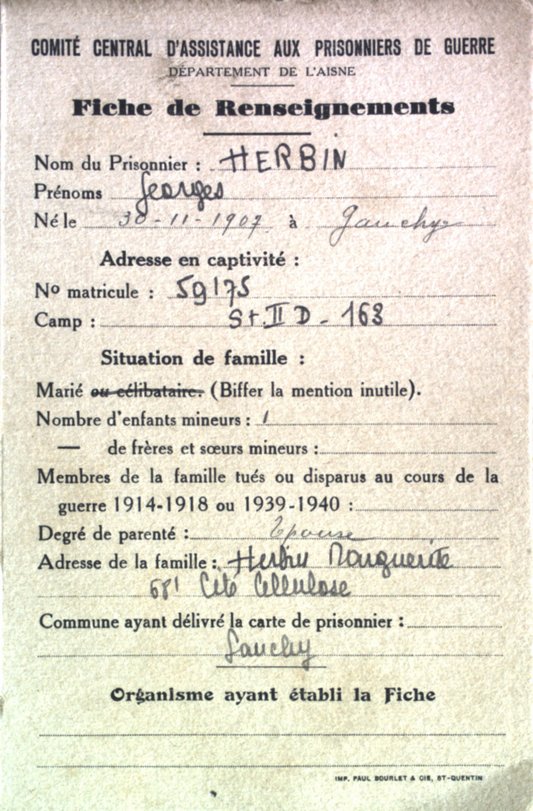 COMITÉ CENTRAL D'ASSISTANCE AUX PRISONNIERS DE GUERRE
DÉPARTEMENT DE L'AISNE
Fiche de Renseignements
Nom du Prisonnier : HERBIN
Prénoms Georges
Né le 30-11-1907 à Gauchy
Adresse en captivité :
Nº matricule : 59175
Camp : St. II D - 163
Situation de famille :
Marié ou célibataire. (Biffer la mention inutile).
Nombre d'enfants mineurs : 1
— de frères et sœurs mineurs :
Membres de la famille tués ou disparus au cours de la
guerre 1914-1918 ou 1939-1940 :
Degré de parenté : Epouse
Adresse de la famille : Herbin Marguerite
Cité Cellulose
Commune ayant délivré la carte de prisonnier :
Gauchy
Organisme ayant établi la Fiche
IMP. PAUL BOURLET & CIE, ST-QUENTIN